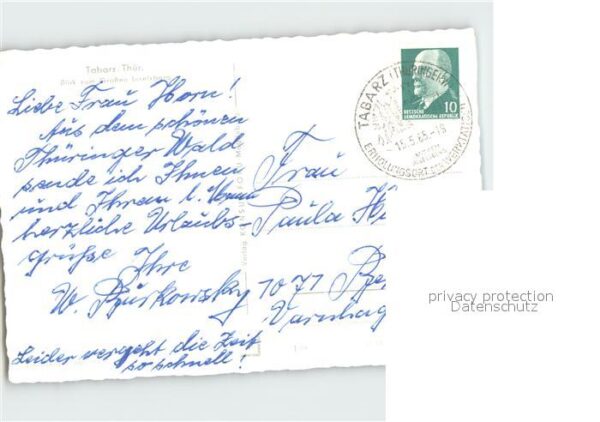 Tabarz/Thür.
Blick vom Großen Inselsberg
Liebe Frau Horn!
Aus dem schönen
Thüringer Wald
sende ich Ihnen
und Ihrem l. Mann
herzliche Urlaubs-
grüße Ihre
W. Burkowsky
Leider vergeht die Zeit
so schnell!
Frau
Paula
1071
Varnhag
10
DEUTSCHE
DEMOKRATISCHE REPUBLIK
TABARZ (THÜRINGER
15.5.65-18
ERHOLUNGSORT
privacy protection
Datenschutz